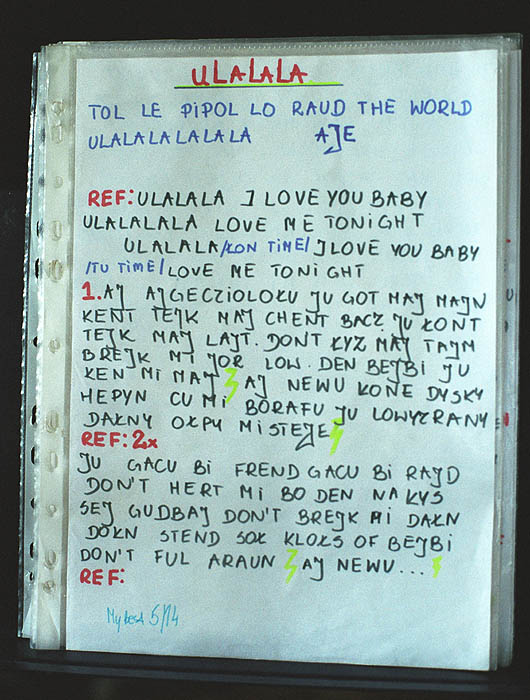 ULALALA
TOL LE PIPOL LO RAUD THE WORLD
ULALALALALALA AJE
REF: ULALALA J LOVE YOU BABY
ULALALALA LOVE ME TONIGHT
ULALALA /ŁON TIME/ J LOVE YOU BABY
/TU TIME/ LOVE ME TONIGHT
1. AJ AJGECZIOLOŁU JU GOT MAJ MAJN
KENT TEJK MAJ CHENT BACZ JU ŁONT
TEJK MAJ LAJT. DONT ŁYZ MAJ TAJM
BREJK MI JOR LOW. DEN BEJBI JU
KEN MI MAJ AJ NEWU KONE DYSKY
HEPYN CU MI BORAFU JU LOWYZRANY
DAŁNY OŁPU MISTEJE
REF: 2x
JU GACU BI FREND GACU BI RAJD
DON'T HERT MI BO DEN NA KYS
SEJ GUDBAJ DON'T BREJK MI DAŁN
DOŁN STEND SOŁ KLOŁS OF BEJBI
DON'T FUL ARAUN AJ NEWU...
REF:
My best 5/14